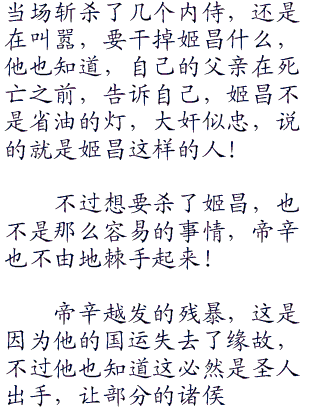 当场斩杀了几个内侍，还是
在叫嚣，要干掉姬昌什么，
他也知道，自己的父亲在死
亡之前，告诉自己，姬昌不
是省油的灯，大奸似忠，说
的就是姬昌这样的人！
不过想要杀了姬昌，也
不是那么容易的事情，帝辛
也不由地棘手起来！
帝辛越发的残暴，这是
因为他的国运失去了缘故，
不过他也知道这必然是圣人
出手，让部分的诸侯